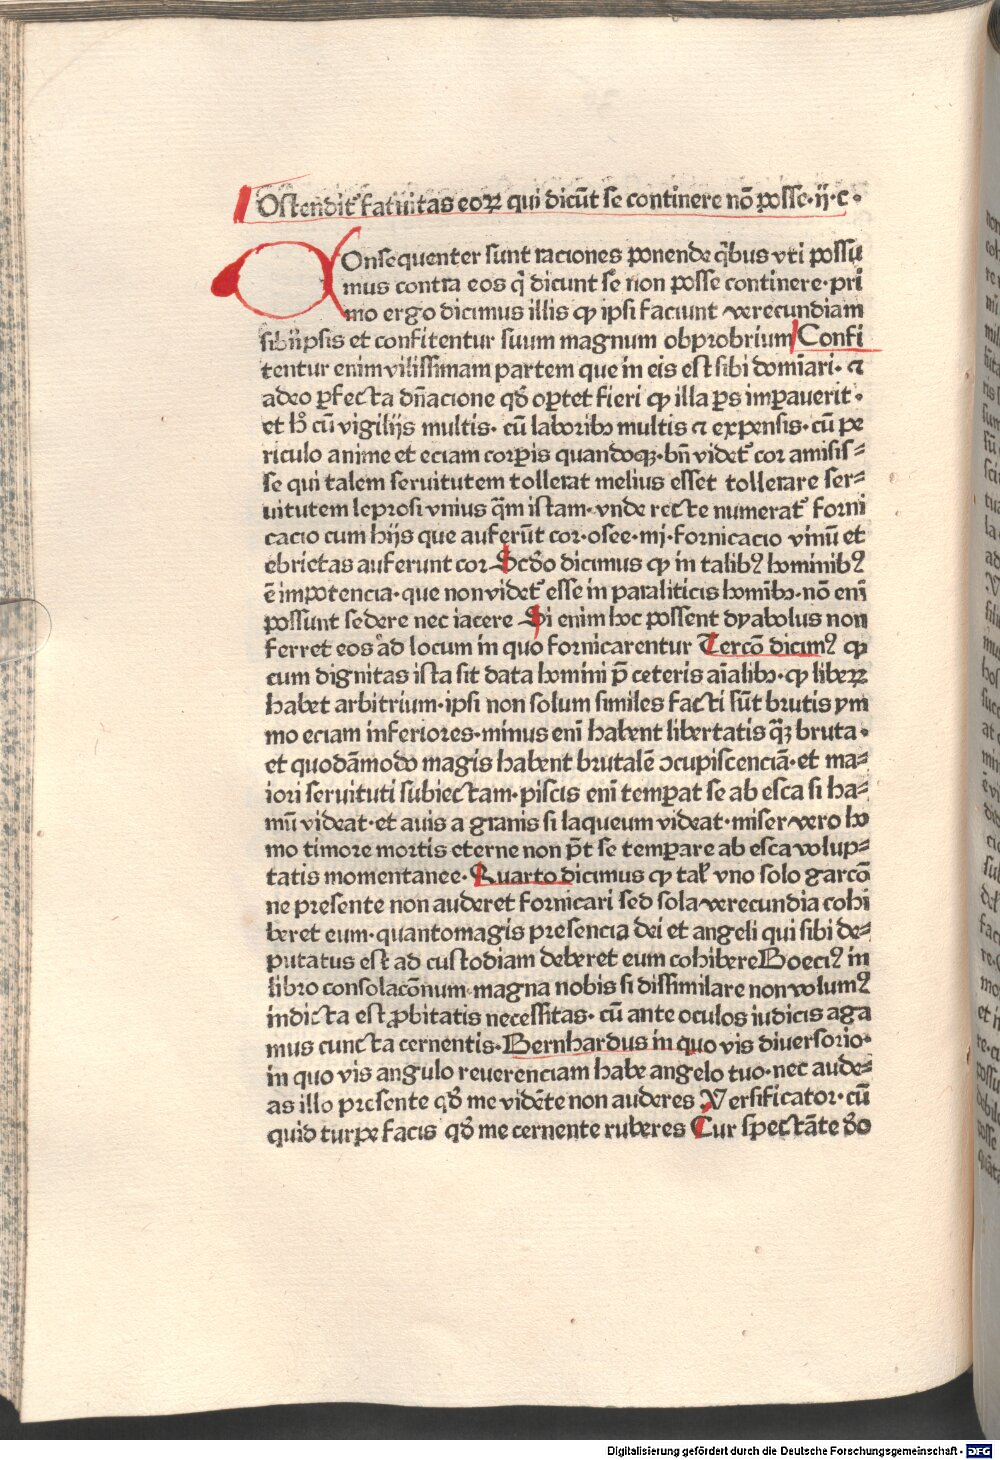 Ostendit᷑ fatuitas eoꝝ qui dicūt se continere nō posse·ij·c·
Onsequenter sunt raciones ponende q̄bus vti possu
mus contra eos q̄ dicunt se non posse continere·pri
mo ergo dicimus illis ꝙ ipsi faciunt verecundiam
sibiipsis et confitentur suum magnum obprobrium Confi
tentur enim vilissimam partem que in eis est sibi domīari· ⁊
adeo ꝑfecta dn̄acione qd̄ oꝑtet fieri ꝙ illa ꝑs imꝑauerit·
et h̄ cū vigilijs multis· cū laboribꝫ multis ⁊ expensis· cū pe
riculo anime et eciam corꝑis quandoqꝫ·bn̄ videt᷑ cor amisis⸗
se qui talem seruitutem tollerat melius esset tollerare ser⸗
uitutem leprosi vnius q̄m istam·vnde recte numerat᷑ forni
cacio cum hijs que auferūt cor·osee·iiij·fornicacio vinū et
ebrietas auferunt cor Scd̄o dicimus ꝙ in talibꝰ hominibꝰ
ē impotencia·que non videt᷑ esse in paraliticis homībꝫ·nō enī
possunt sedere nec iacere Si enim hoc possent dyabolus non
ferret eos ad locum in quo fornicarentur Tercō dicimꝰ ꝙ
cum dignitas ista sit data homini p̄ ceteris aīalibꝫ·ꝙ liberꝝ
habet arbitrium·ipsi non solum similes facti sūt brutis ym
mo eciam inferiores·minus enī habent libertatis q̄ꝫ bruta·
et quodāmodo magis habent brutalē ↄcupiscenciā·et ma⸗
iori seruituti subiectam·piscis enī temꝑat se ab esca si ha⸗
mū videat·et auis a granis si laqueum videat·miser vero ho
mo timore mortis eterne non p̄t se temꝑare ab esca volup⸗
tatis momentanee·Quarto dicimus ꝙ tal̓ vno solo garcō
ne presente non auderet fornicari sed sola verecundia cohi
beret eum·quantomagis presencia dei et angeli qui sibi de⸗
putatus est ad custodiam deberet eum cohibere Boeciꝰ in
libro consolacōnum·magna nobis si dissimilare non volumꝰ
indicta est ꝓbitatis necessitas· cū ante oculos iudicis aga
mus cuncta cernentis·Bernhardus in quo vis diuersorio·
in quo vis angulo reuerenciam habe angelo tuo·nec aude⸗
as illo presente qd̄ me vidēte non auderes Versificator·cū
quid turpe facis qd̄ me cernente ruberes Cur spectāte deo
Digitalisierung gefördert durch die Deutsche Forschungsgemeinschaft - DFG